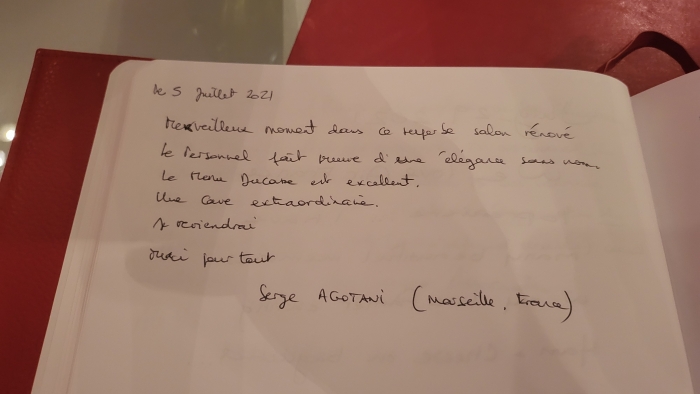 le 5 Juillet 2021
Merveilleux moment dans ce superbe salon rénové
Le Personnel fait preuve d'une élégance sans nom.
Le Menu Ducasse est excellent.
Une Cave extraordinaire.
Je reviendrai
Merci pour tout
Serge AGOTANI (Marseille, France)